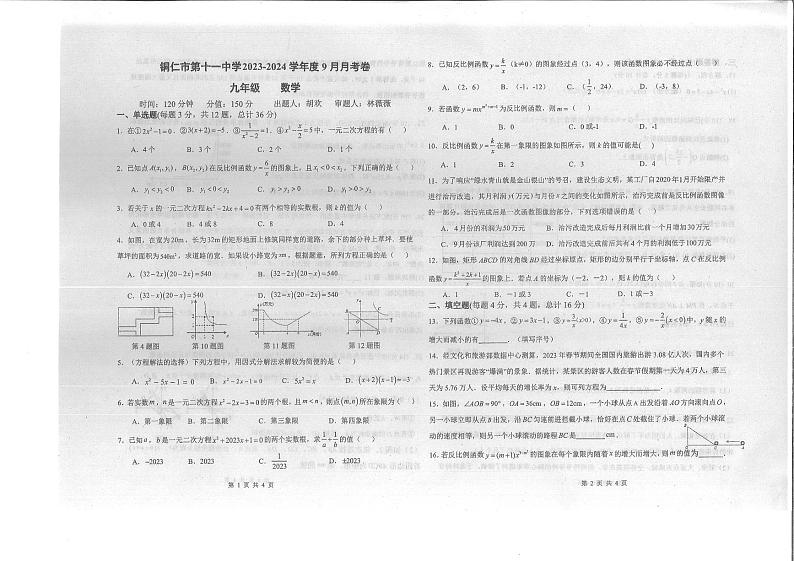 铜仁市第十一中学2023-2024学年度9月月考卷
九年级 数学
时间：120分钟 分值：150分 出题人：胡欢 审题人：林薇薇
一、单选题(每题3分，共12题，总计36分)
1．在①2x²-1=0．②3(x+2)=-5．③1/x²-2=1．④x²-x/2=5中，一元二次方程的有（ ）
A．4个 B．3个 C．2个 D．1个
2．已知点A(x₁,y₁)，B(x₂,y₂)在反比例函数y=6/x的图象上，且x₁<0<x₂，下列正确的是（ ）
A．y₁<y₂<0 B．y₁<0<y₂ C．y₁>y₂>0 D．y₁>0>y₂
3．若关于x的一元二次方程kx²-2kx+4=0有两个相等的实数根，则k的值为（ ）
A．0或4 B．4或8 C．8 D．4
4．如图，在宽为20m，长为32m的矩形地面上修筑同样宽的道路，余下的部分种上草坪．要使
草坪的面积为540m²，求道路的宽．如果设小路宽为xm，根据题意，所列方程正确的是（ ）
A．(32-2x)(20-2x)=540 B．(32-2x)(20-x)=540
C．(32-x)(20-x)=540 D．(32-x)(20-2x)=540
第4题图 第10题图 第11题图 第12题图
5．（方程解法的选择）下列方程中，用因式分解法求解较为简便的是（ ）
A．x²-5x-1=0 B．x²-2x-1=0 C．5x²=x D．(x+2)(x-1)=-3
6．若实数m，n是一元二次方程x²-2x-3=0的两个根，且m<n，则点(m,n)所在象限为（ ）
A．第一象限 B．第二象限 C．第三象限 D．第四象限
7．已知a，b是一元二次方程x²+2023x+1=0的两个实数根，求1/a+1/b的值（ ）
A．-2023 B．2023 C．1/2023 D．±2023
第 1 页 共 4 页
8．已知反比例函数y=k/x（k≠0）的图象经过点（3，4），则该函数图象必不经过点（ ）
A．（2，6） B．（-1，-12） C．（1/2，24） D．（-3，8）
9．若函数 为反比例函数，则m=（ ）
A．1 B．0 C．0或-1 D．-1
10．反比例函数y=k/x在第一象限的图象如图所示，则k的值可能是(
A．1 B．2 C．3 D．4
11．为了响应“绿水青山就是金山银山”的号召，建设生态文明，某工厂自2020年1月开始限产并
进行治污改造，其月利润y(万元)与月份x之间的变化如图所示，治污完成前是反比例函数图像
的一部分，治污完成后是一次函数图像的部分，下列选项错误的是（ ）
A．4月份的利润为50万元 B．治污改造完成后每月利润比前一个月增加30万元
C．9月份该厂利润达到200万 D．治污改造完成前后共有4个月的利润低于100万元
12．如图，矩形ABCD的对角线BD经过坐标原点，矩形的边分别平行于坐标轴，点C在反比例
函数y=k²+2k+1/x的图象上．若点A的坐标为（-2，-2），则k的值为（ ）
A．1 B．-1或3 C．-1 D．1或-3
二、填空题(每题4分，共4题，总计16分)
13．下列函数①y=-4x，②y=3x-1，③y=2/x(x>0)，④y=1/4x，⑤y=-2/x(x<0)中，y随x的
增大而减小的有______．（填写序号）
14．经文化和旅游部数据中心测算，2023年春节期间全国国内旅游出游3.08亿人次，国内多个
热门景区再现游客“爆满”的景象．据统计，某景区的游客人数在春节假期第一天为4万人，第三
天为5.76万人．设平均每天的增长率为x，则可列方程为______．
15．如图，∠AOB=90°，OA=36cm，OB=12cm，一个小球从点A出发沿着AO方向滚向点O，
另一小球立即从点B出发，沿BC匀速前进拦截小球，恰好在点C处截住了小球．若两个小球滚
动的速度相等，则另一个小球滚动的路程BC是______cm．
16．若反比例函数 的图象在每个象限内随着x的增大而增大，则m的值为______．
第 2 页 共 4 页